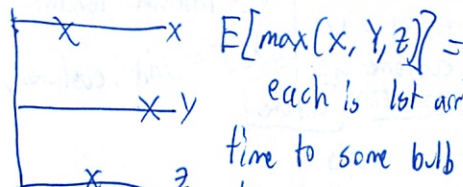 X E[max(X, Y, Z)] =
each is 1st arr
Y
time to some bulb
Z